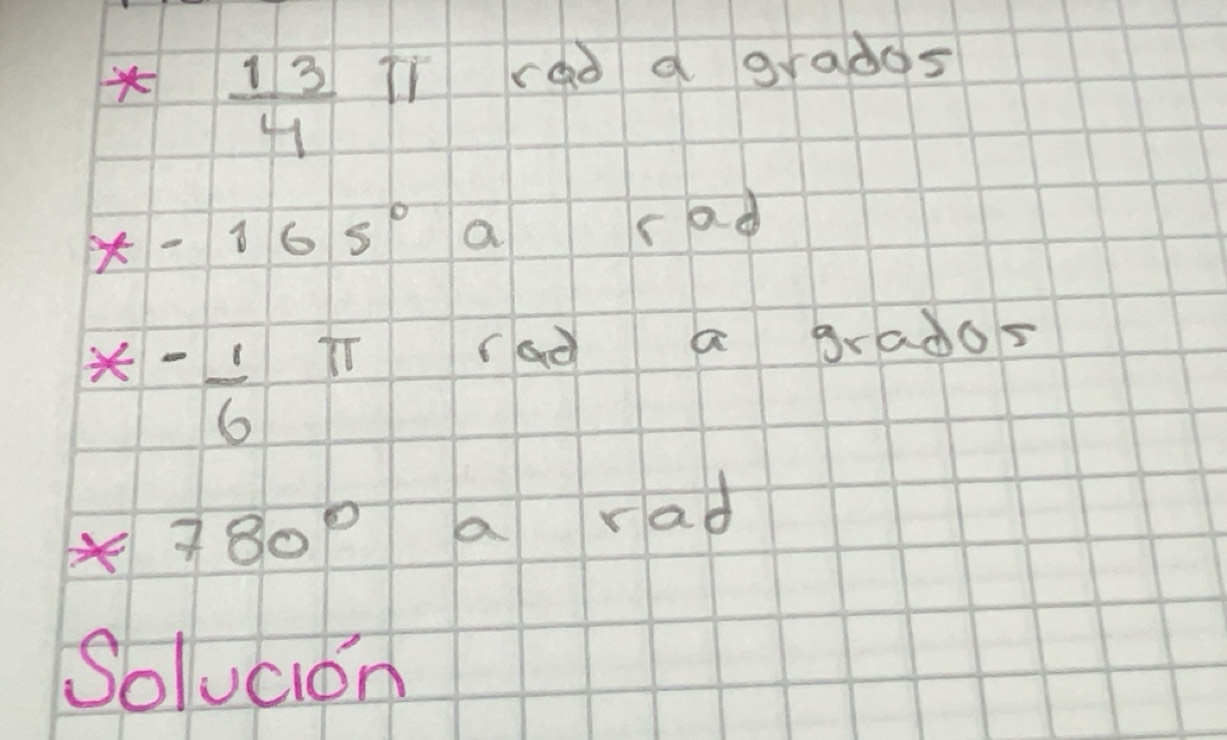 * 13/4 π rad a grados
* - 165° a rad
* - 1/6 π rad a grados
* 780° a rad
Solución